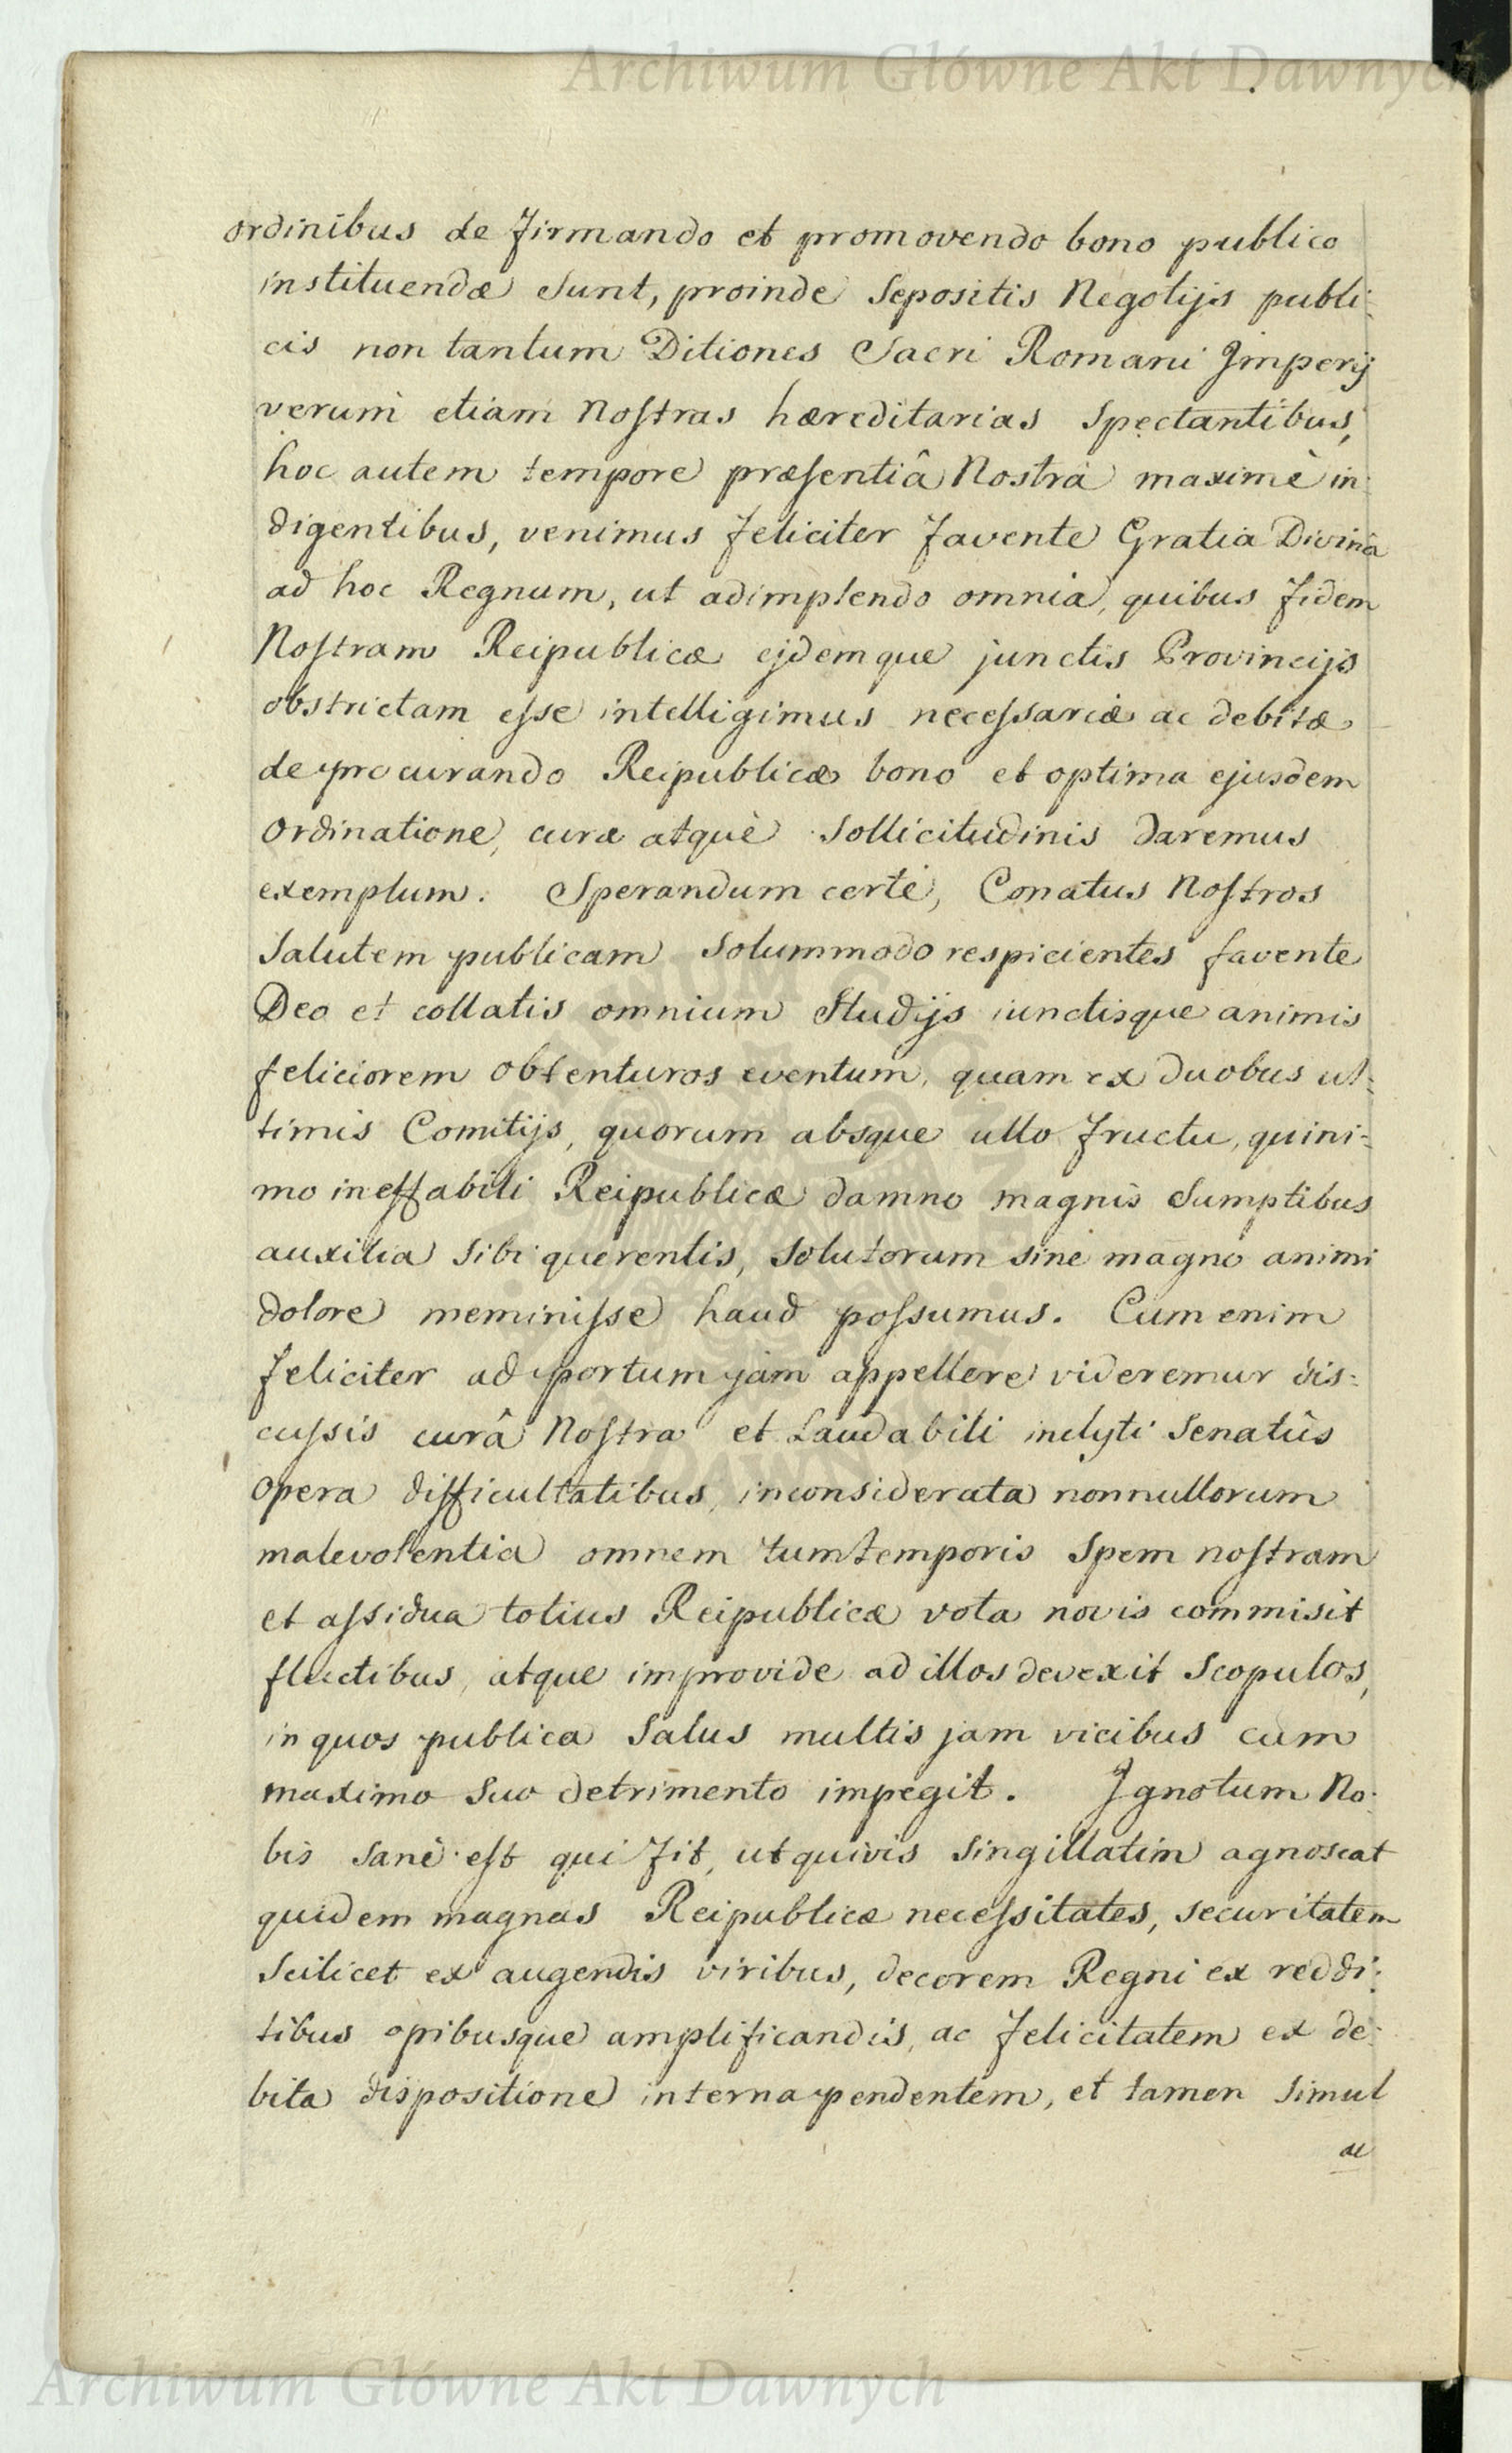 Archiwum Główne Akt Dawnych
ordinibus de firmando et promovendo bono publico
instituendæ sunt, proinde sepositis Negotijs publi-
cis non tantum Ditiones Sacri Romani Imperij
verum etiam Nostras hæreditarias spectantibus,
hoc autem tempore præsentiâ Nostrâ maximè in-
digentibus, venimus feliciter favente Gratia Divinâ
ad hoc Regnum, ut adimplendo omnia, quibus fidem
Nostram Reipublicæ ejdemque junctis Provincijs
obstrictam esse intelligimus necessariæ ac debitæ
de procurando Reipublicæ bono et optima ejusdem
Ordinatione, curæ atquè sollicitudinis daremus
exemplum. Sperandum certè, Conatus Nostros
Salutem publicam solummodo respicientes favente
Deo et collatis omnium Studijs iunctisque animis
feliciorem obtenturos eventum, quam ex duobus ul-
timis Comitijs, quorum absque ullo fructu, quini-
mo ineffabili Reipublicæ damno magnis sumptibus
auxilia sibi querentis, solutorum sine magno animi
dolore meminisse haud possumus. Cum enim
feliciter ad portum jam appellere videremur dis-
cussis curâ Nostra et Laudabili inclyti Senatûs
opera difficultatibus, inconsiderata nonnullorum
malevolentia omnem tumtemporis Spem nostram
et assidua totius Reipublicæ vota novis commisit
fluctibus, atque improvide ad illos devexit Scopulos,
in quos publica Salus multis jam vicibus cum
maximo suo detrimento impegit. Ignotum No-
bis sanè est qui fit, ut quivis singillatim agnoscat
quidem magnas Reipublicæ necessitates, securitatem
scilicet ex augendis viribus, decorem Regni ex reddi-
tibus opibusque amplificandis, ac felicitatem ex de-
bita dispositione interna pendentem, et tamen simul
ac
Archiwum Główne Akt Dawnych